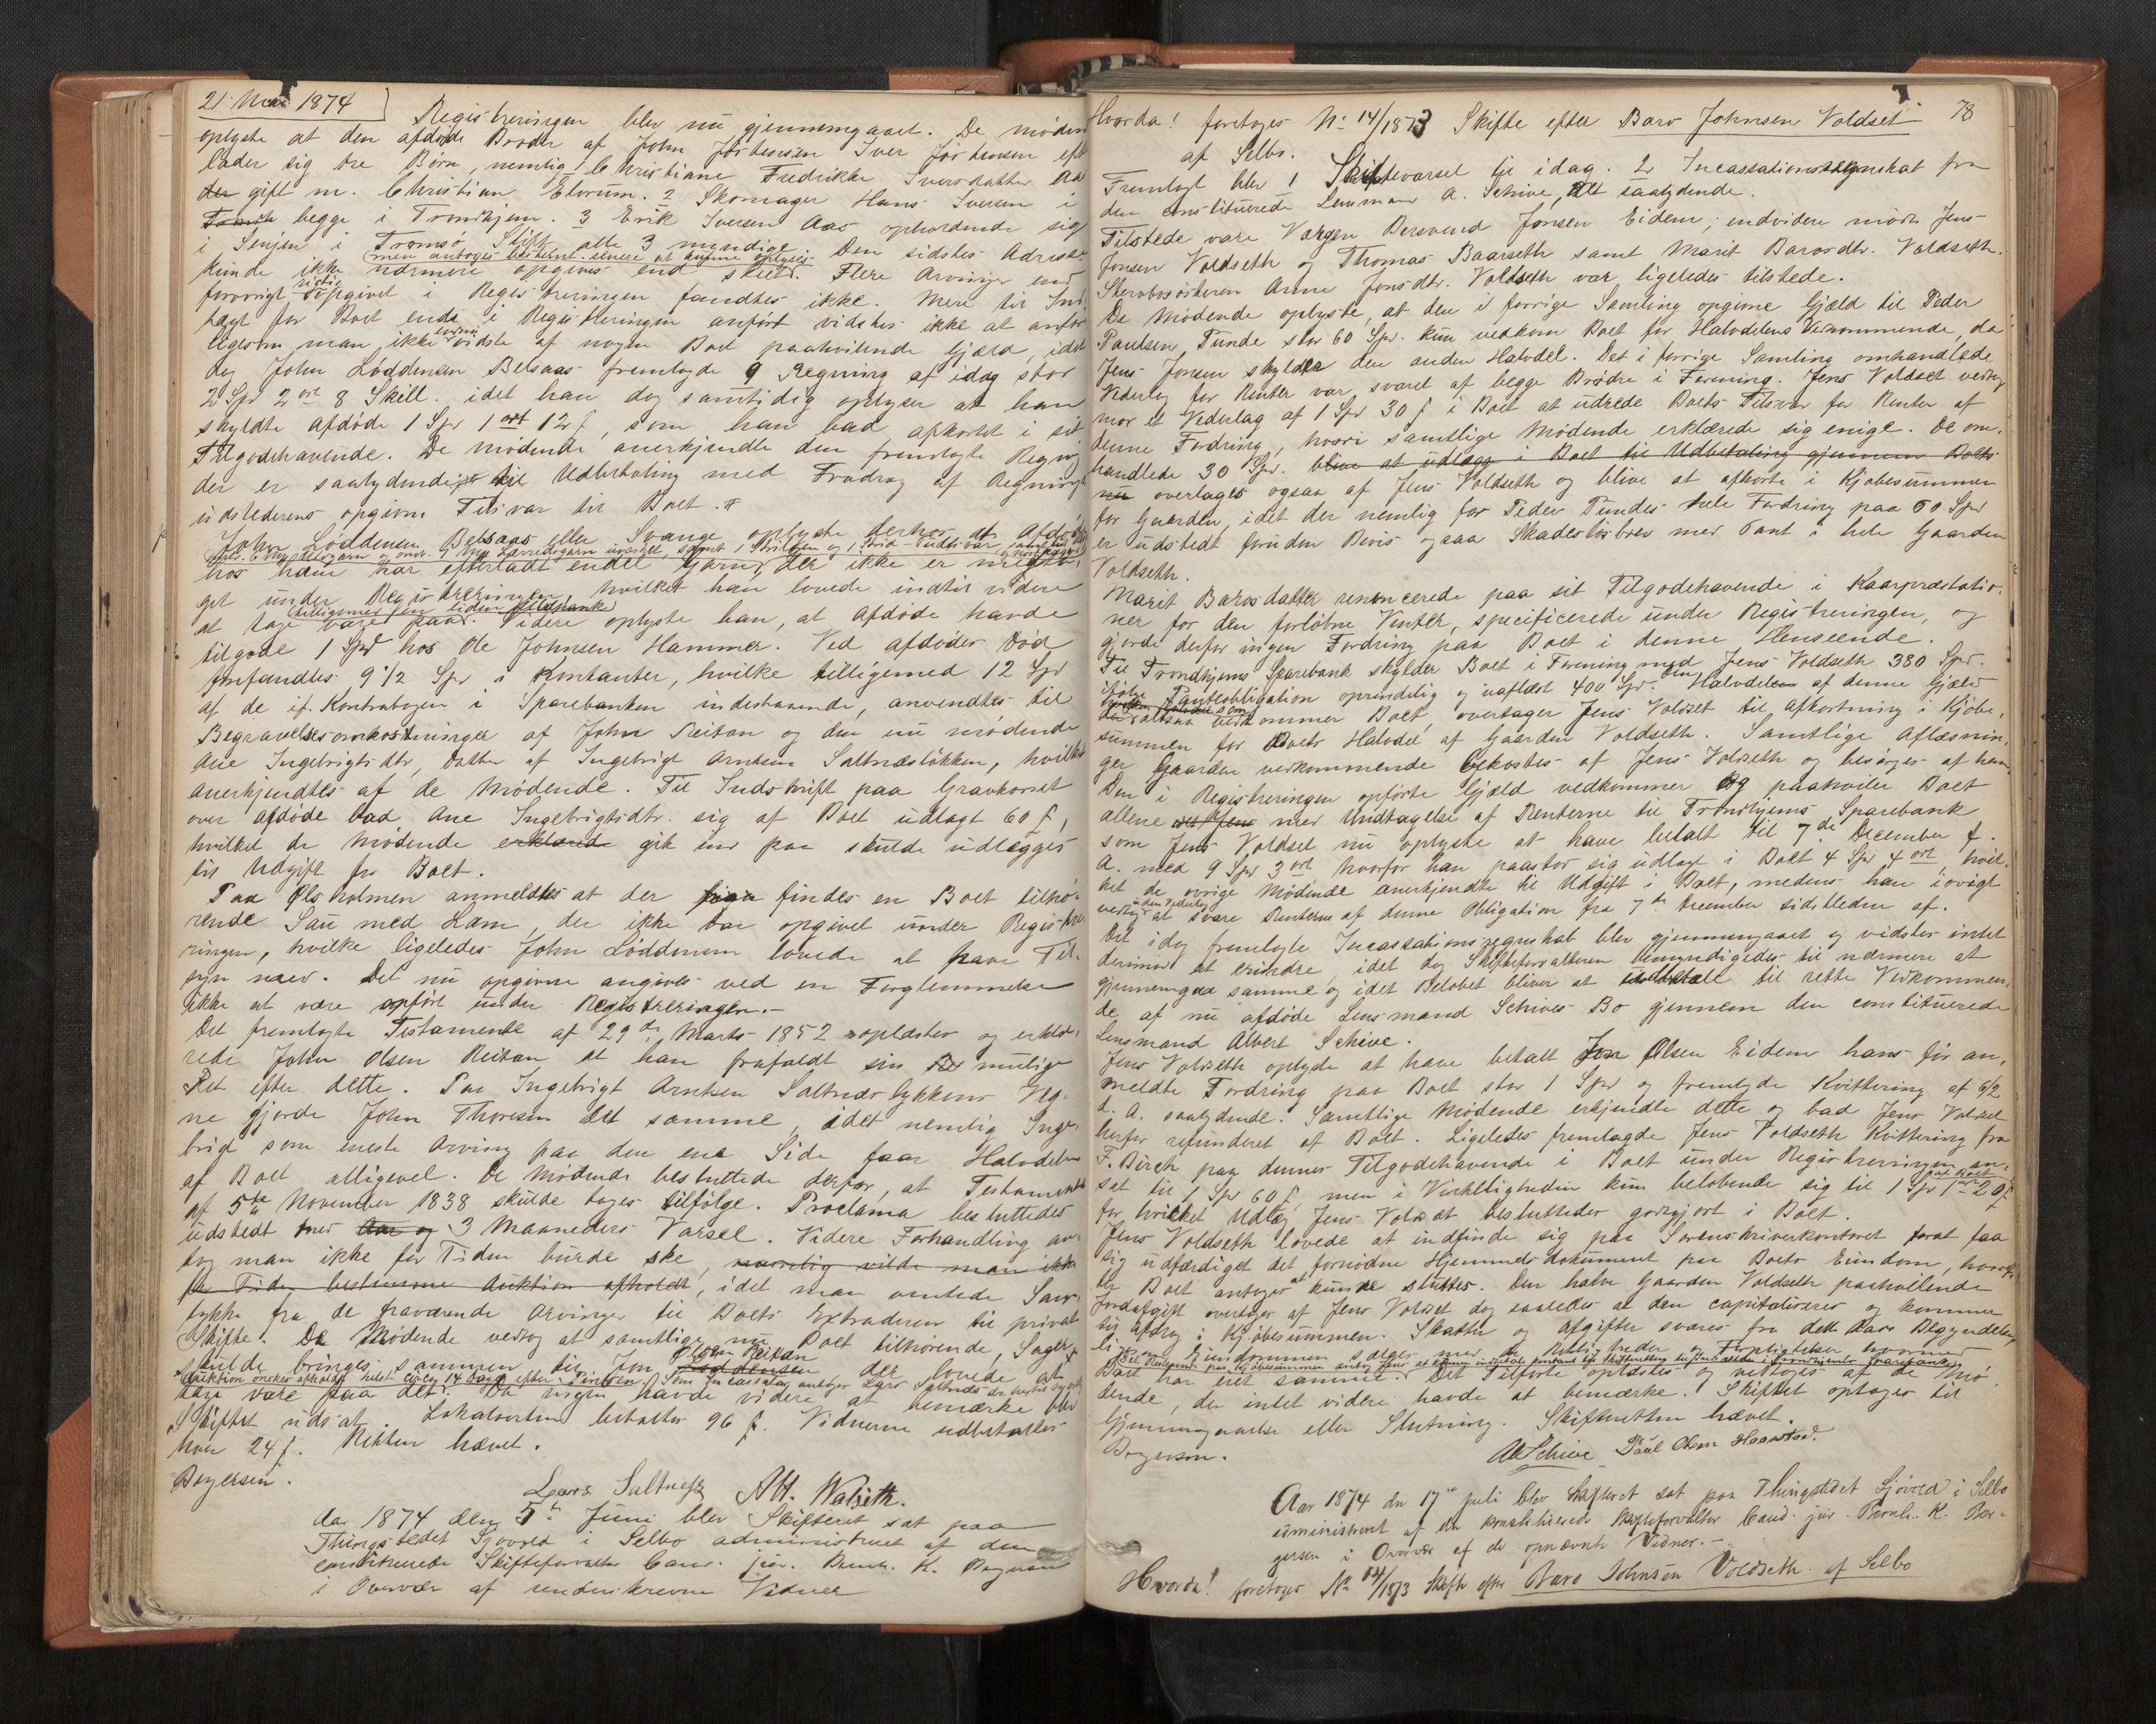 21 Mai 1874
Registreringen blev nu gjennemgaaet. De mödende
oplyste at den afdöde Broder af John Jörtensen Iver Jörtensen efter
lader sig tre Börn, nemlig 1 Christiane Fredrikke Iversdatter Aas
der gift m. Christian Elvrum. 2 Skomager Hans Iversen i
begge i Trondhjem. 3 Erik Iversen Aas opholdende sig
i Senjen i Tromsö Stift alle 3 myndige. Den sidstes Adresse
men antoges bestemt senere at kunne oplyses
kunde ikke nærmere opgives end skeet. Flere Arvinger end
forövrigt rigtig opgivet i Registreringen fandtes ikke. Mere til Ind
tægt for Boet end i Registreringen anfört vidstes ikke at anföre
ligesom man ikke endnu vidste af nogen Boet paahvilende Gjæld, idet
dog John Löddensen Belsaas fremlagde 9 Regning af idag stor
2 Spd 2 ort 8 Skill. idet han dog samtidig oplyser at han
skyldte afdöde 1 Spd 1 ort 12 ß, som han bad afkortet i sit
Tilgodehavende. De mödende anerkjendte den fremlagte Regning
der er saalydende til Udbetaling med Fradrag af Regnings
udstederens opgivne Tilsvar til Boet.
John Löddensen Belsaas eller Svange oplyste derhos at Afdöde
hos ham har efterladt endel Garn, der ikke er medta-
get under Registreringen, hvilket han lovede indtil videre
tilligemed en liden
at tage vare paa. Videre oplyste han, at Afdöde havde
tilgode 1 Spd hos Ole Johnsen Hammer. Ved afdödes Död
forefandtes 9 1/2 Spd i Kontanter, hvilke tilligemed 12 Spd
af de if. Kontrabogen i Sparebanken indestaaende, anvendtes til
Begravelsesomkostninger af John Reitan og den nu mödende
Ane Ingebrigtsdtr, Datter af Ingebrigt Arntsen Saltnæslökken, hvilket
anerkjendtes af de Mödende. Til Indskrift paa Gravkorset
over afdöde bad Ane Ingebrigtsdtr. sig af Boet udlagt 60 ß,
hvilket de mödende erklærede gik ind paa skulde udlægges
til Udgift fra Boet.
Paa Olsholmen anmeldtes at der findes en Boet tilhö-
rende Sau med Lam, der ikke var opgivet under Registre
ringen, hvilke ligeledes John Löddensen lovede at have Til-
syn med. Det nu opgivne angives ved en Forglemmelse
ikke at være opfört under Registreringen.-
Det fremlagte Testamente af 29de Marts 1852 oplæstes og erklæ-
rede John Olsen Reitan at han frafaldt sin mulige
Ret efter dette. Paa Ingebrigt Arntsen Saltnæslykkens Veg-
ne gjorde John Thoresen det samme, idet nemlig Inge-
brigt som eneste Arving paa den ene Side faar Halvdelen
af Boet alligevel. De Mödende besluttede derfor, at Testamentet
af 5te November 1838 skulde tages tilfölge. Proclama besluttedes
udstedt med Aar og 3 Maaneders Varsel. Videre Forhandling an-
tog man ikke for Tiden burde ske, nemlig vilde man ikke
for Tiden bestemme Auktion afholdt, idet man ventede Sam-
tykke fra de fraværende Arvinger til Boets Extradering til privat
Skifte. De Mödende vedtog at samtlige nu Boet tilhörende Sager
Olsen Reitan
skulde bringes sammen til John Löddensen der lovede at
Auktion önskes afholdt helst circa 14 Dage efter Pintsen. Som Incassator antoges Lars Saltnes
tage vare paa det. Da ingen havde videre at bemærke blev
Skiftet udsat. Lokalverten betaltes 96 ß. Vidnerne udbetaltes
hver 24 ß. Retten hævet.
Bögersen.
Lars Saltnes AH. Walseth.
Aar 1874 den 5te Juni blev Skifteret sat paa
Thingstedet Sjövold i Selbo administreret af den
constituerede Skifteforvalter Cand. jur. Bernh. K. Bögersen
i Overvær af underskrevne Vidner
78
Hvorda! foretoges No 14/1873 Skifte efter Baro Johnsen Voldset
af Selbo.
Fremlagt blev 1 Skiftevarsel til idag. 2 Incassationsregnskab fra
den constituerede Lensmand A. Schive, Alt saalydende.
Tilstede vare Værgen Bersvend Jonsen Eidem; endvidere mödte Jens
Jonsen Voldseth og Thomas Baarseth samt Marit Barosdtr. Voldseth.
Stervbosösteren Anne Jonsdtr. Voldseth var ligeledes tilstede.
De Mödende oplyste, at den i forrige Samling opgivne Gjæld til Peder
Paulsen Tunde stor 60 Spd. kun vedkom Boet for Halvdelens Vedkommende, da
Jens Jonsen skylder den anden Halvdel. Det i forrige Samling omhandlede
Vederlag for Renter var svaret af begge Brödre i Forening. Jens Voldset vedtog
mod et Vederlag af 1 Spd 30 ß i Boet at udrede Boets Tilsvar for Renter af
denne Fordring, hvori samtlige Mödende erklærede sig enige. De om-
handlede 30 Spd. blive at udlægge i Boet til Udbetaling gjennem Boets
nu overtages ogsaa af Jens Voldseth og blive at afkorte i Kjöbesummen
for Gaarden, idet der nemlig for Peder Tundes hele Fordring paa 60 Spd
er udstedt foruden Bevis ogsaa Skadeslösbrev med Pant i hele Gaarden
Voldseth.
Marit Barosdatter renoncerede paa sit Tilgodehavende i Kaarpræstatio-
ner for den forlöbne Vinter, specificerede under Registreringen, og
gjorde derfor ingen Fordring paa Boet i denne Henseende.
Til Trondhjems Sparebank skylder Boet i Forening med Jens Voldseth 380 Spd.
ifölge Panteobligation oprindelig og uaflæst 400 Spd. Den Halvdelen af denne Gjæld
der altsaa vedkommer Boet, overtager Jens Voldset til Afkortning i Kjöbe-
summen for Boets Halvdel af Gaarden Voldseth. Samtlige Aflæsnin-
ger Gaarden vedkommende bekostes af Jens Voldseth og besörges af ham.
Den i Registreringen opförte Gjæld vedkommer og paahviler Boet
allene med Undtagelse af Renterne til Trondhjems Sparebank
som Jens Voldset nu oplyste at have betalt til 7de December f.
A. med 9 Spd 3 ort hvorfor han paastod sig udlagt i Boet 4 Spd 4 ort, hvil-
ket de övrige Mödende anerkjendte til Udgift i Boet, medens han iövrigt
vedtog uden Vederlag at svare Renterne af denne Obligation fra 7de December sidstleden af.
Det idag fremlagte Incassationsregnskab blev gjennemgaaet og vidstes intet
derimod at erindre, idet dog Skifteforvalteren bemyndigedes til nærmere at
gjennemgaa samme og idet Belöbet bliver at udbetale til rette Vedkommen-
de af nu afdöde Lensmand Schives Bo gjennem den constituerede
Lensmand Albert Schive.
Jens Voldseth oplyste at have betalt Jon Olsen Eidem hans för an-
meldte Fordring paa Boet stor 1 Spd og fremlagde Kvittering af 6/2
d. A. saalydende. Samtlige Mödende erkjendte dette og bad Jens Voldset
herfor refunderet af Boet. Ligeledes fremlagde Jens Voldseth Kvittering fra
F. Birch paa dennes Tilgodehavende i Boet under Registreringen an-
sat til 1 Spd 60 ß, men i Virkeligheden kun belöbende sig til 1 Spd 1 ort 20 ß
for hvilket Udlæg Jens Voldset besluttedes godtgjort i Boet.
Jens Voldseth lovede at indfinde sig paa Sorenskriverkontoret forat faa
sig udfærdiget det fornödne Hjemmelsdokument paa Boets Eiendom, hvorefter
Boet antoges at kunde sluttes. Den halve Gaarden Voldseth paahvilende
Jordafgift overtages af Jens Voldset dog saaledes at den capitaliseres og kommer
til Afdrag i Kjöbesummen. Skatter og Afgifter svares fra dette Aars Begyndelse,
ligesom Eiendommen sælges med de Rettigheder og Forpligtelser hvormed
Boet har eiet samme. Det Tilförte oplæstes og vedtoges af de Mö-
dende, der intet videre havde at bemærke. Skiftet optages til
Gjennemgaaelse eller Slutning. Skifteretten hævet.
Bögersen.
A Schive Paul Olsen Haarstad.
Aar 1874 den 17de Juli blev Skifteret sat paa Thingstedet Sjövold i Selbo
administreret af den constituerede Skifteforvalter Cand. jur. Bernh. K. Bö-
gersen i Overvær af de opnævnte Vidner.-
Hvorda! foretoges No 14/1873 Skifte efter Baro Johnsen Voldseth af Selbo